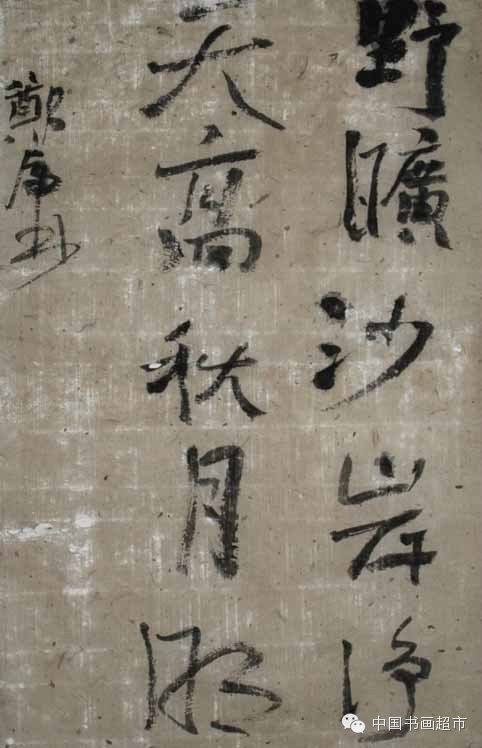 野曠沙岸淨
天高秋月明
中国书画超市